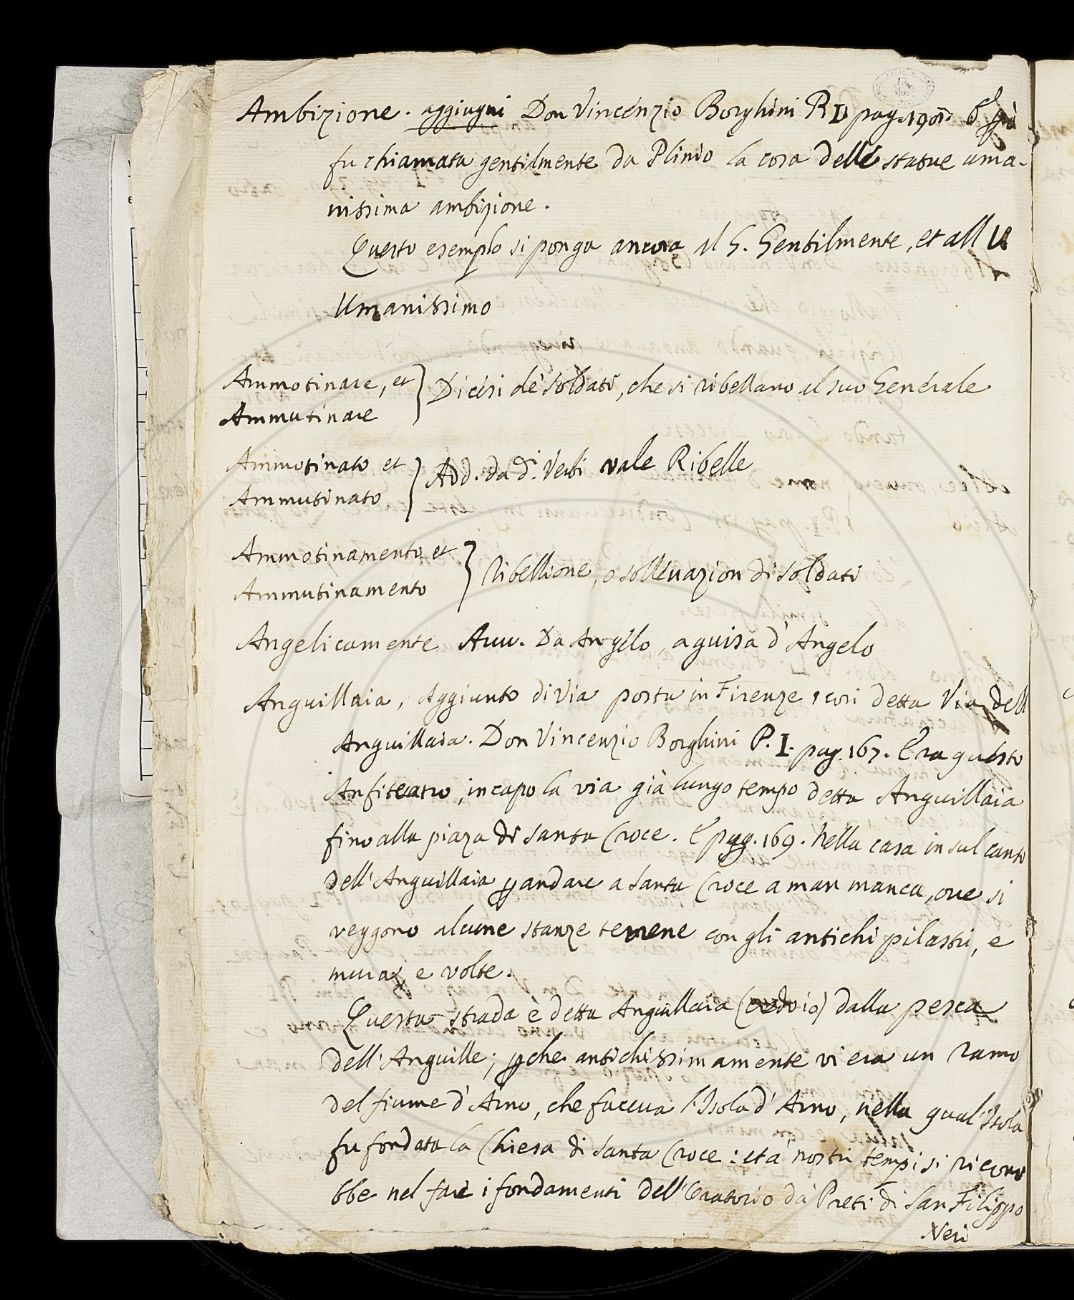 Ambizione. aggiugni Don Vincenzio Borghini P. I. pag. E già
fu chiamata gentilmente da Plinio la cosa delle statue uma-
nissima ambizione.
Questo esemplo si ponga ancora al G. Gentilmente, et all' U
Umanissimo
Ammotinare, et
Ammutinare } Dicesi de' soldati, che si ribellano al suo Generale
Ammotinato et
Ammutinato } Add. da d.i Verbi vale Ribelle
Ammotinamento et
Ammutinamento } Ribellione, o sollevazion di soldati
Angelicamente Avv. Da Angelo, a guisa d'Angelo
Anguillaia, Aggiunto di Via posta in Firenze e cosi detta Via dell'
Anguillaia. Don Vincenzio Borghini P. I. pag. 167. Era questo
Anfiteatro, in capo la via già lungo tempo detta Anguillaia
fino alla piaza di Santa Croce. E pag. 169. Nella casa in sul canto
dell'Anguillaia p andare a Santa Croce a man manca, ove si
veggono alcune stanze terrene con gli antichi pilastri, e
mura, e volte.
Questa strada è detta Anguillaia (credo io) dalla pesca
dell'Anguille; pche antichissimamente vi era un ramo
del fiume d'Arno, che faceva l'Isola d'Arno, nella qual'Isola
fu fondata la Chiesa di Santa Croce: et a' nostri tempi si ricono
bbe nel fare i fondamenti dell'Oratorio da' Preti di San Filippo
Neri